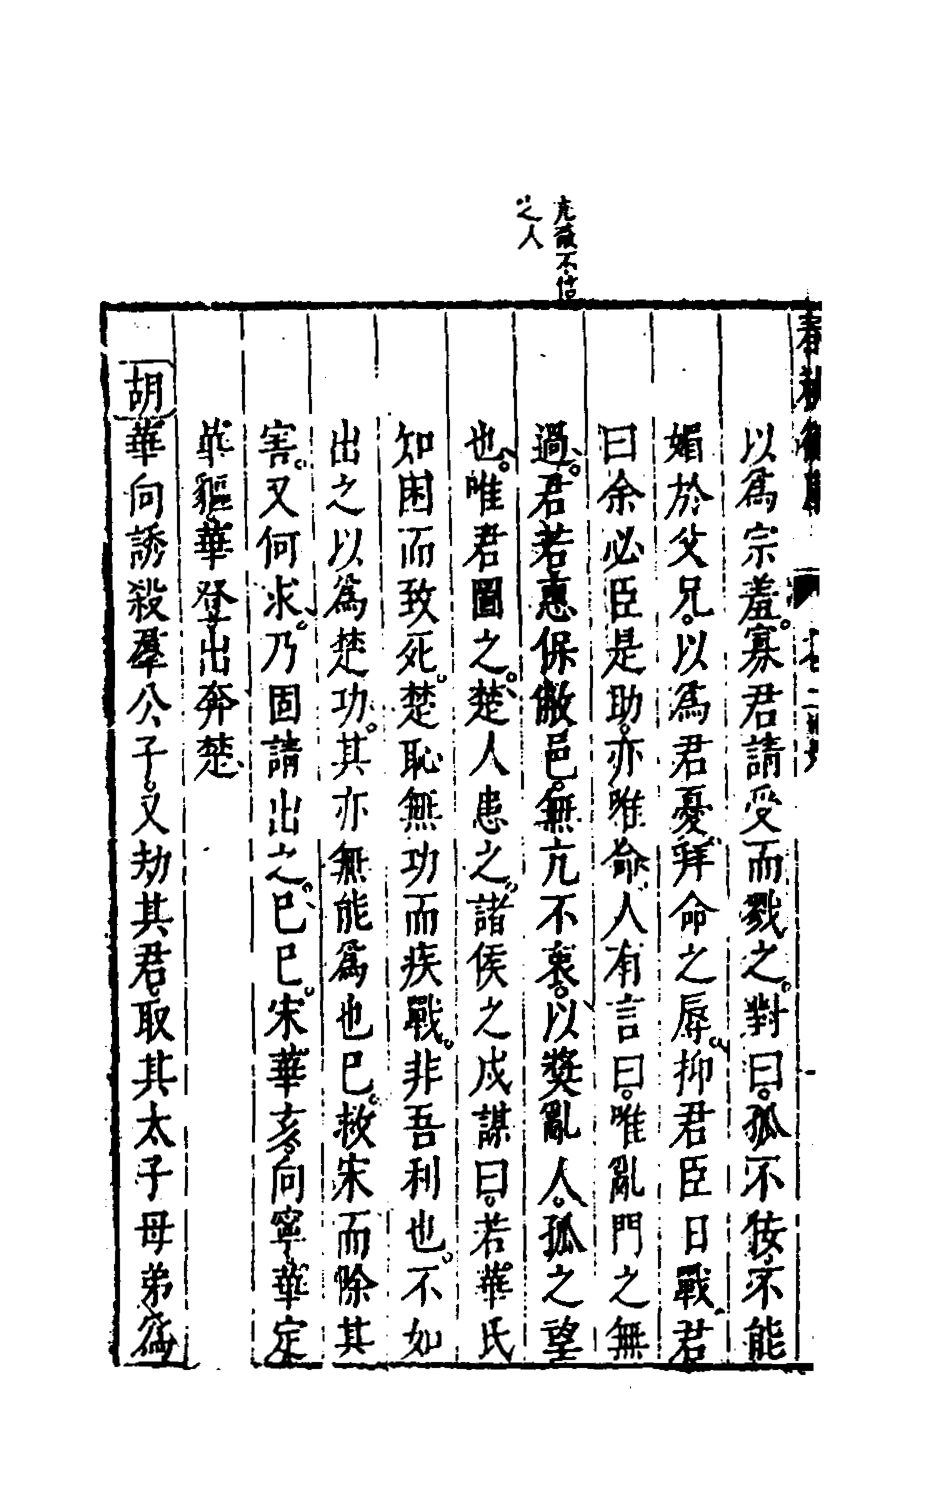 以爲宗羞寡君請受而戮之對曰孤不佞不能
媚於父兄以爲君憂拜命之辱抑君臣日戰君
曰余必臣是助亦唯命人有言曰唯亂門之無
過君若惠保敝邑無亢不衷以奬亂人孤之望
也唯君圖之楚人患之諸侯之戍謀曰若華氏
知困而致死楚恥無功而疾戰非吾利也不如
出之以爲楚功其亦無能爲也巳救宋而除其
害又何求乃固請出之巳巳宋華亥向寧華定
華貙華登出奔楚
胡華向誘殺羣公子又劫其君取其太子母弟爲